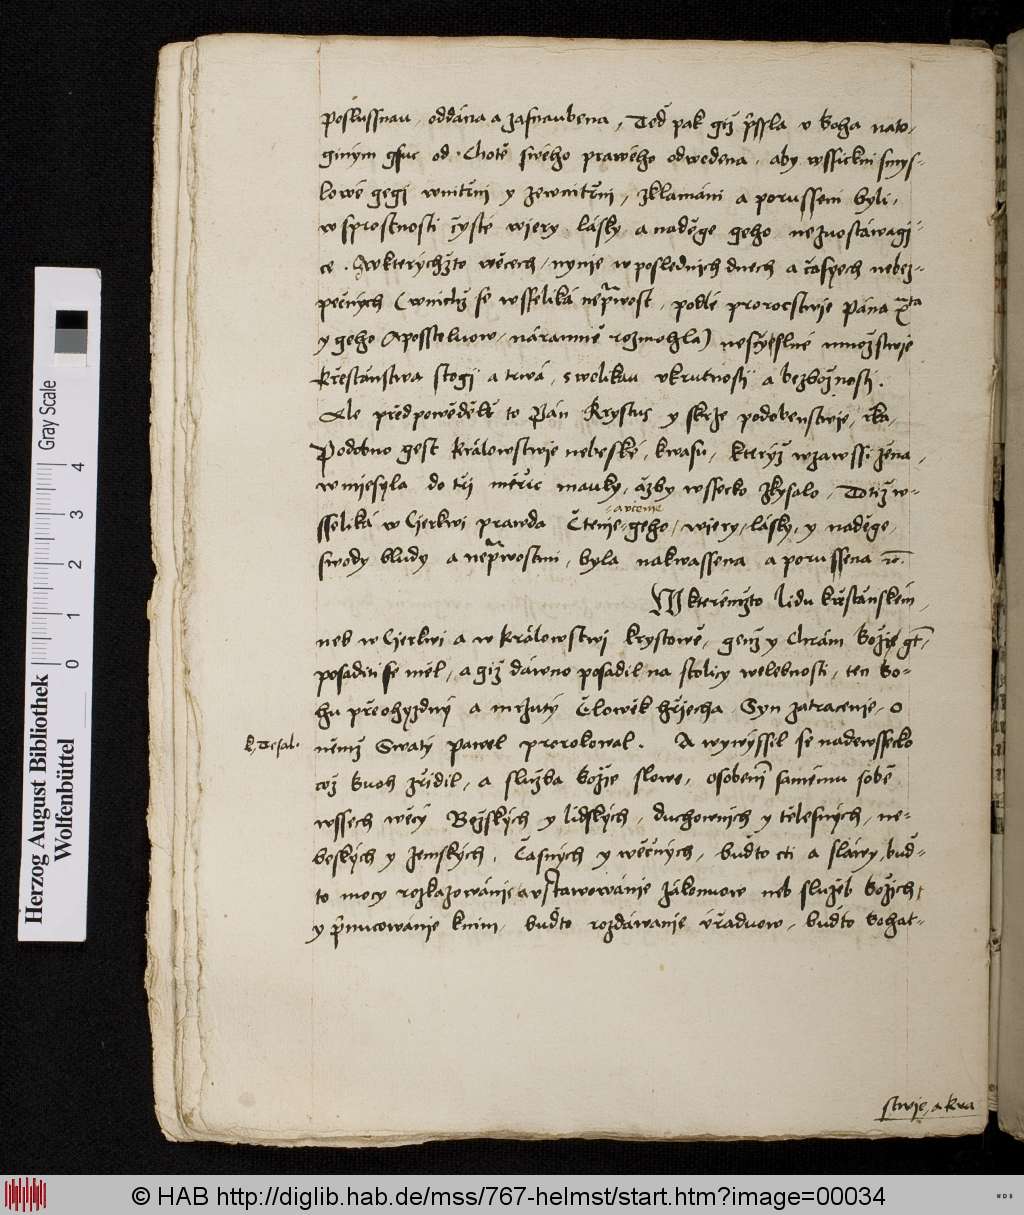 poslussnau, oddána a zasnaubena, Teď pak giž přissla v Boha nato-
giným gsuc od Chotě swého prawého odwedena, aby wssickni smys-
lowé gegj wnitřni y zewnitřni, zklamáni a porusseni byli,
w sprostnosti čysté wiery, lásky, a naděge geho nezuostáwagj-
ce. Wkterýchžto wěcech, nynie w poslednich dnech a časých nebez-
pečných (wnichž se wsselika neprawost, podlé proroctwie Pána Xta
y geho Aposstoluow, náramně rozmohla) nesčyslné množstwie
křestianstwa stogj a trwá, s welikau vkrutnostj a bezbožnostj.
Ale předpowěděl to Pán Krystus y skrze podobenstwie, řka,
Podobno gest Králowstwie nebeské, kwasu, kterýž wzawssi žena,
w miesyla do tři měřic mauky, ažby wssecko zkysalo, Totiž w-
sseliká w Cjerkwi prawda Čtenie a včenie geho, wiery, lásky, y naděge,
swody bludy a neprawostmi, byla nakwassena a porussena &c.
W kterémžto lidu křestianském,
neb w Cjerkwi a w králowstwi krystowě, genž y Chrám Božie gt,
posaditi se měl, a giž dáwno posadil na stolicy welebnosti, ten Bo-
hu přeohyzdný a mrzutý Člowěk hřjecha, Syn zatracenie, o
2. Tesal.
němž Swatý Pawel prorokowal. A wywýssil se nadewssecko
což Buoh zřjdil, a služba Božie slowe, osobeni samému sobě
wssech wěcý Božských y lidských, duchownich y tělesných, ne-
beských y zemských, Časných y wěčných, buďto cti a sláwy, buď-
to mocy rozkazowánie a vstawowánie zákonuow neb služeb Božich,
y přinucowánie knim, buďto rozdáwanie vřaduow, buďto bohat-
stwie, a kra
Herzog August Bibliothek
Wolfenbüttel
Gray Scale
0 1 2 3 4
© HAB http://diglib.hab.de/mss/767-helmst/start.htm?image=00034
WDB